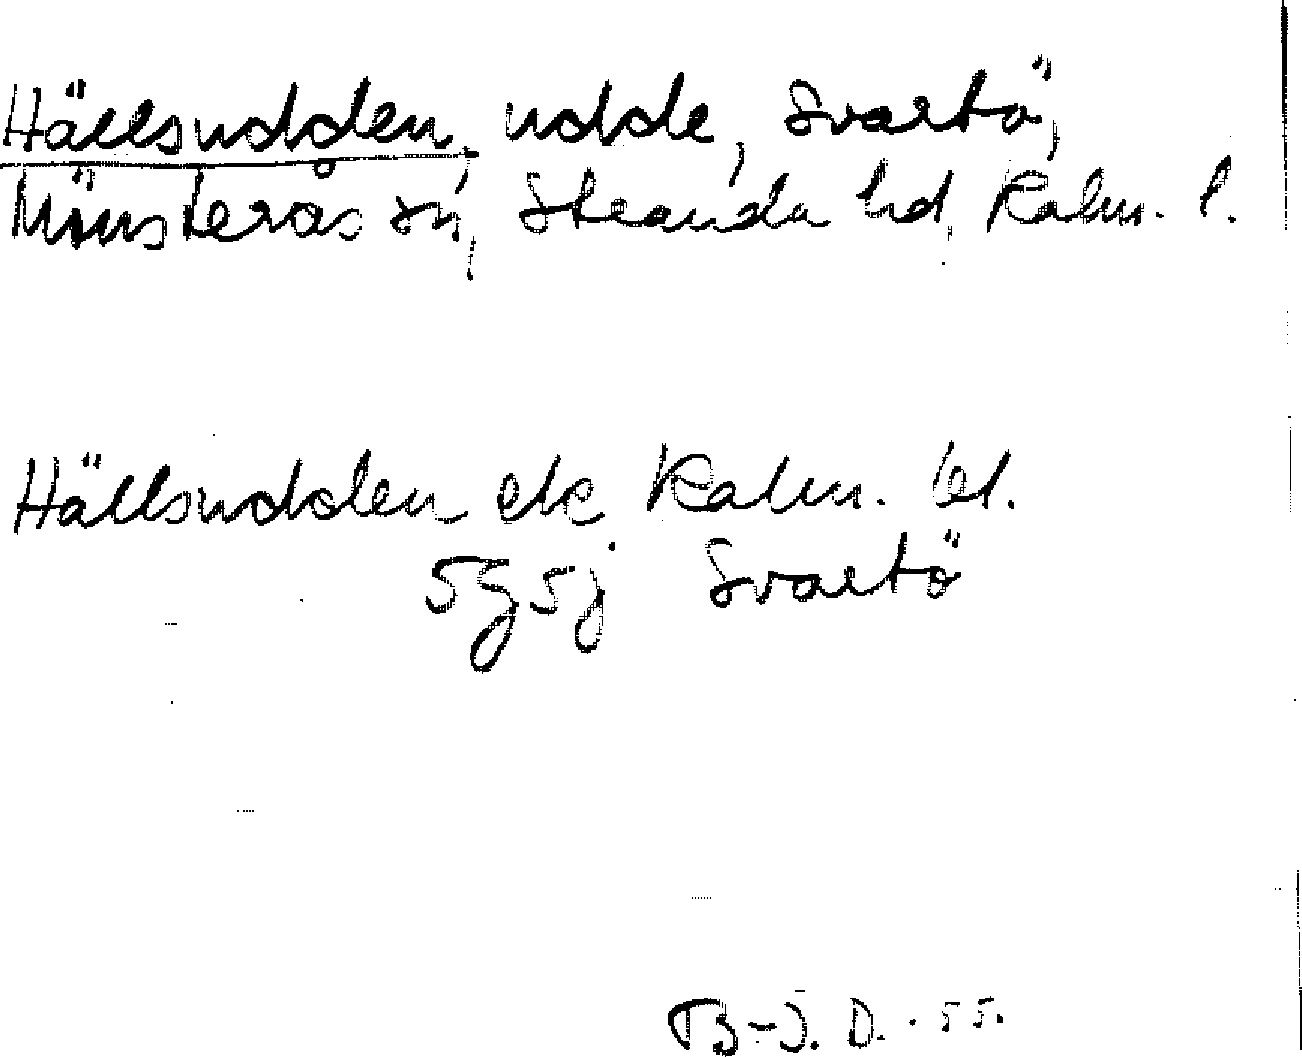 Hällsudden, udde, Svartö,
Mönsterås sn, Stranda hd, Kalm. l.
Hällsudden ek Kalm. bl.
5g5j Svartö
B-J. D. 55.